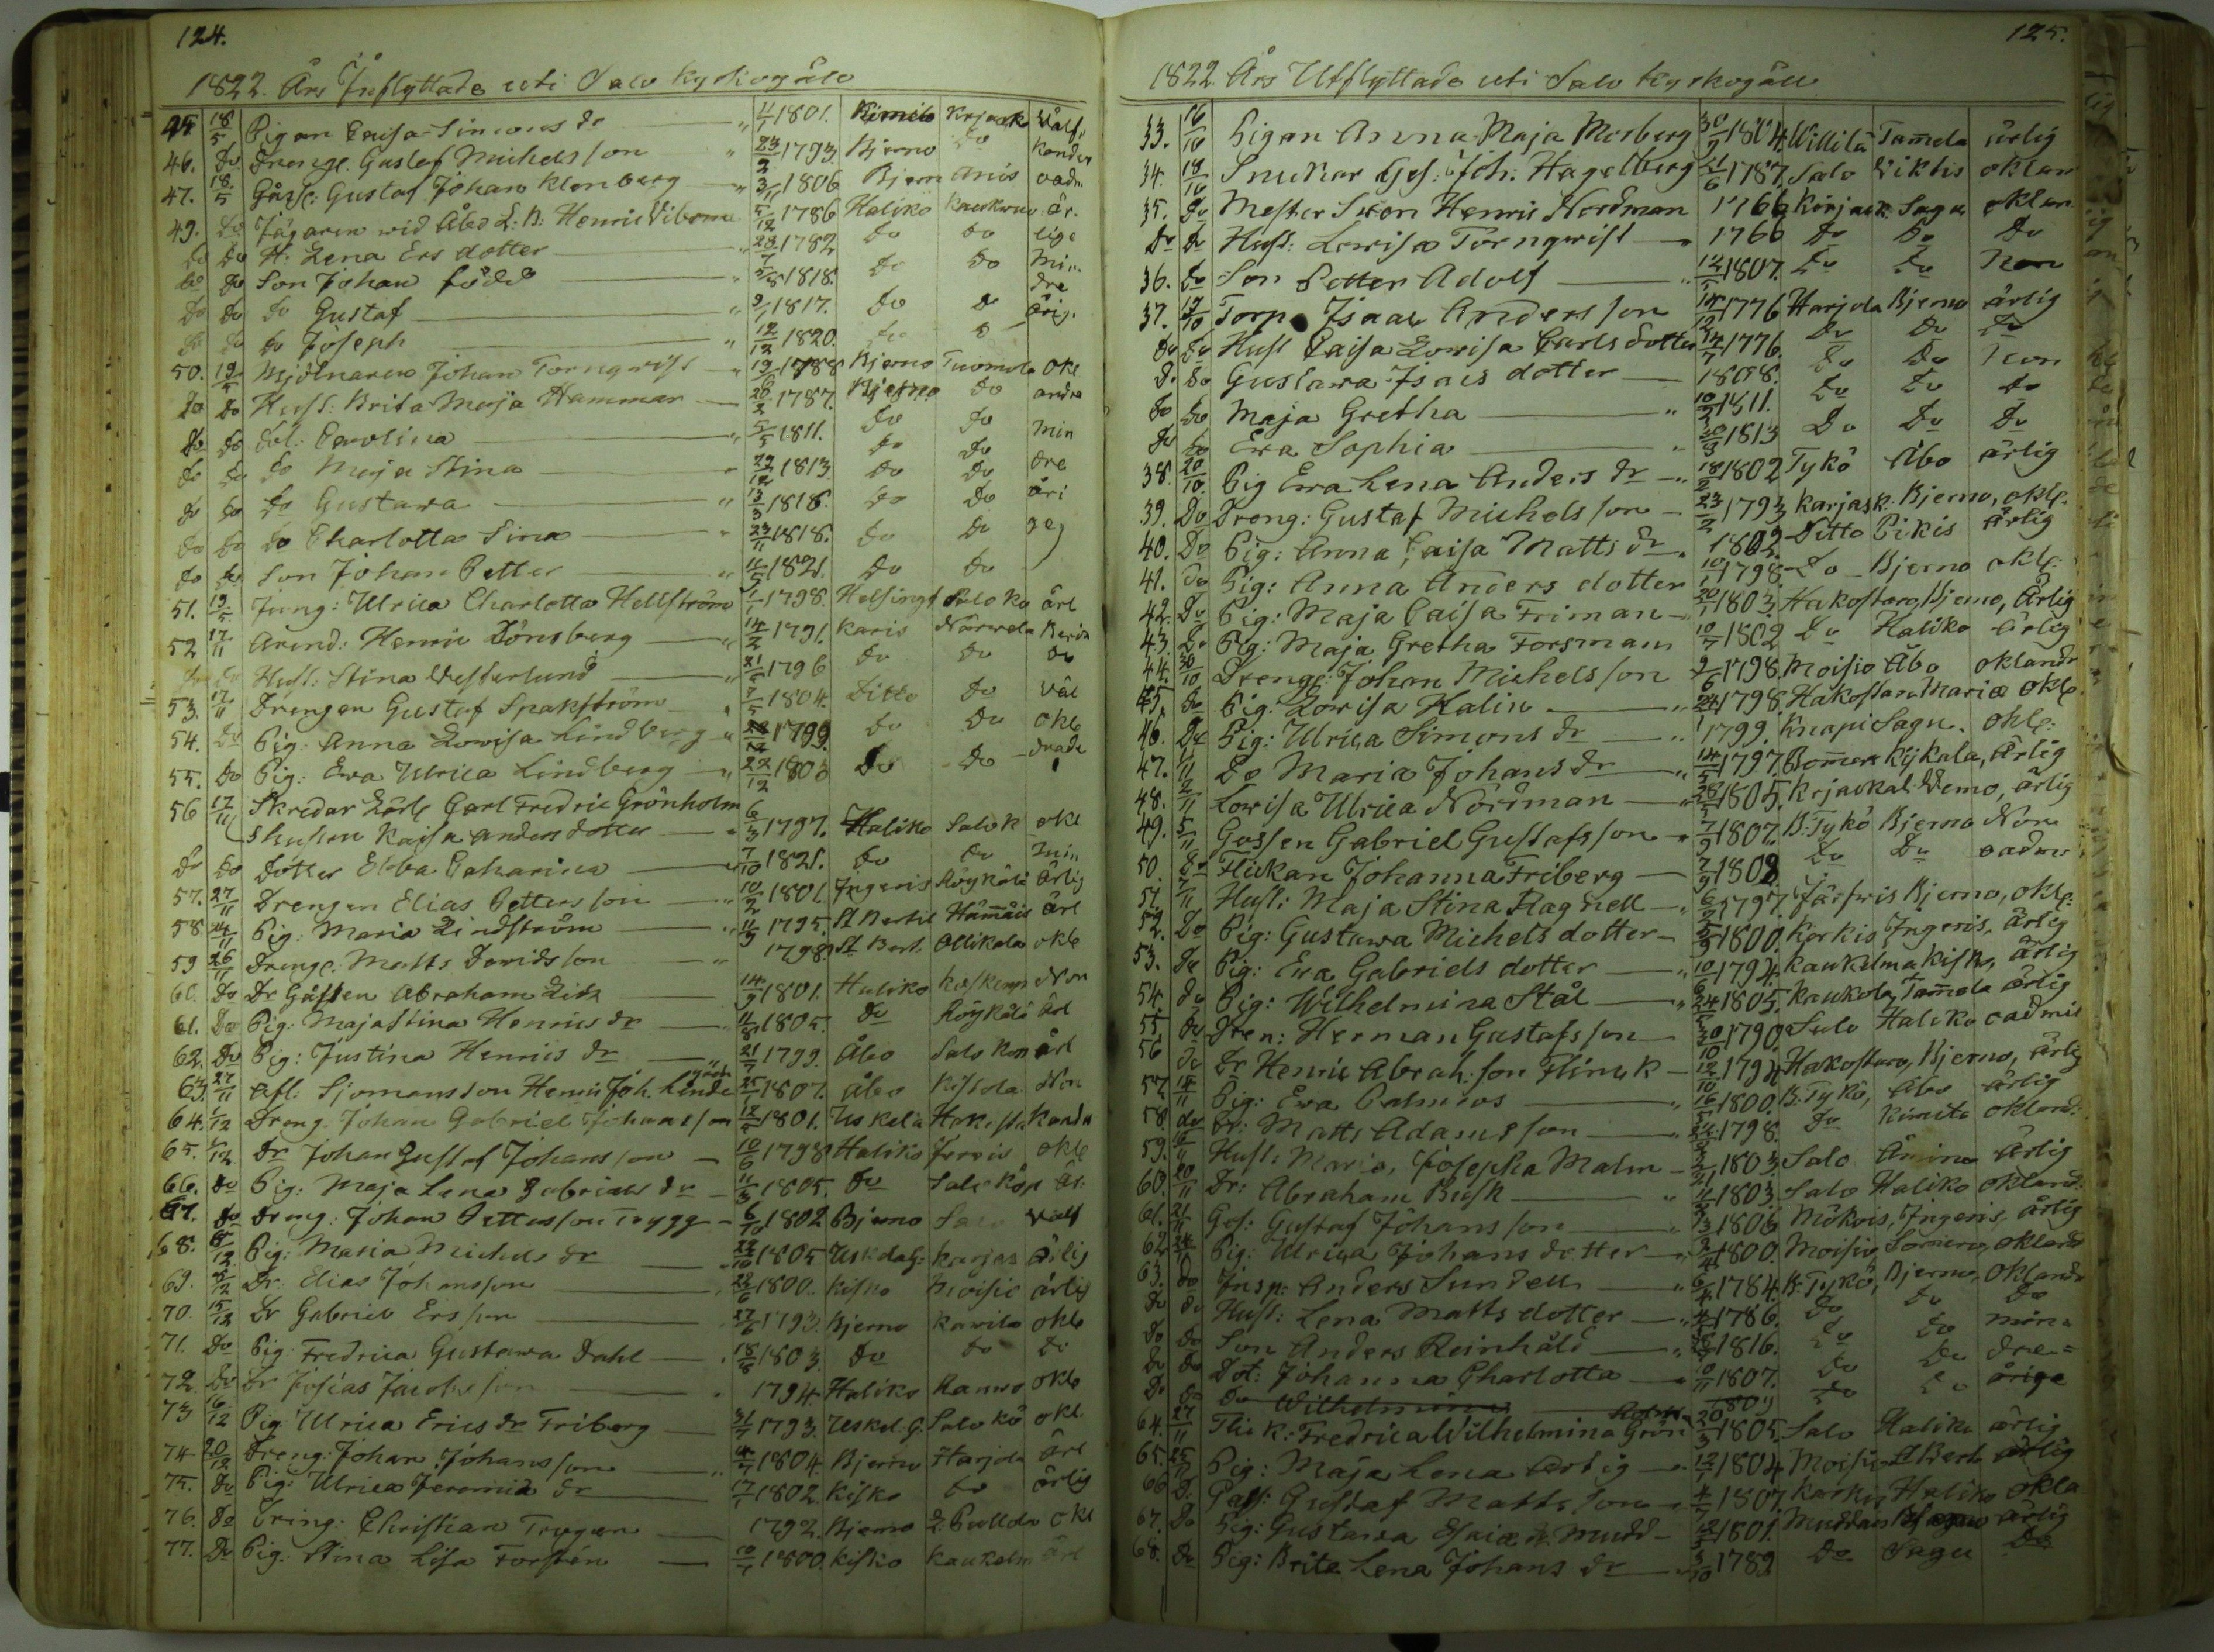 124.
1822. Års Inflyttade uti Salo Kyrkogäll
45 18/5 Pigan Caisa Simons dr " 4/7 1801. Kimito Krjaask Välf.
46. Do Drenge. Gustaf Michelsson " 23/2 1793. Bjerno Do kandes
47. 18/5 Gåsse: Gustaf Johan Klenberg " 3/11 1806 Bjern Anis oadm
49. Do Jägaren wid Åbo L: B: Henric Vibom 5/12 1786 Haliko Kaukwuo är.
Do Do H: Lena Ers dotter " 29/7 1782 Do Do lige
Do Do Son Johan född " 5/8 1818. Do Do Min
Do Do Do Gustaf " 9/1 1817. Do Do dre årig.
Do Do Do Joseph " 12/12 1820. Do Do
50. 19/5 Mjölnaren Johan Tornqwist " 19/6 1788 Bjerno Tuomola okl
Do Do Hust: Brita Maja Hammar 20/2 1787. Bjerno Do andra
Do Do dot: Carolina " 5/5 1811. Do Do Min
Do Do Do Maja Stina " 29/12 1813. Do Do dre
Do Do Do Gustava " 13/3 1818. Do Do åri
Do Do Do Charlotta Sina " 23/11 1818. Do Do ge)
Do Do Son Johan Petter " 11/5 1821. Do Do
51. 19/5 Jung: Ulrica Charlotta Hellström 1/1 1798. Helsingf Salo ko ärl
52 17/11 Arend: Henric Dönsberg " 14/2 1791. Karis Närvela Berid
Do Do Hust: Stina Westerlund " 21/5 1796 Do Do Do
53. 17/11 Drengen Gustaf Spakström 4/5 1804. Ditto Do Väl
54. Do Pig: Anna Lowisa Lindberg " 1799. Do Do okl
55. Do Pig: Ewa Ulrica Lindberg " 22/12 1803 Do Do drade
56 17/11 Skredar Lärl Carl Fredric Grönholm
Hustrun Kaisa Anders dotter " 6/3 1797. Haliko Salo k okl
Do Do Dotter Ebba Catharina 7/10 1821. Do Do Min
57. 27/11 Drengen Elias Pettersson " 10/2 1801. Ingeris Röykälä Ärlig
58 24/11 Pig: Maria Lindström " 11/9 1795. St Bertil Hämäis ärl
59 26/11 Drenge. Matts Davidsson " 1798 St Bert. Ollikala okl
60. Do Dr Gåssen Abraham Lida 14/9 1801. Haliko Non
61. Do Pig: Maja Stina Henrics dr " 11/8 1805. Do Röykälä Ärl
62. Do Pig: Justina Henrics dr " 21/7 1799. Åbo Salo kon ärl
63. 27/11 afl: Sjomansson Henric Joh. Linde 25/1 1807. Åbo Non
64. 1/12 Dreng. Johan Gabriel Johansson 12/5 1801. Uskela Kända
65. 1/12 Dr Johan Gustaf Johansson 10/6 1798 Haliko okl
66. Do Pig: Maja Lena Gabriels dr 11/3 1805. Do Salo köp Är
67. Do Dreng: Johan Pettersson Trygg 6/10 1802 Bjerno Salo Valf
68. 6/12 Pig: Maria Michels dr 22/10 1805 Uskela G: Karjas Ärlig
69. 8/12 Dr: Elias Johansson 22/6 1800. Kisko Moisio ärlig
70. 15/12 Dr Gabriel Ersson 27/6 1793. Bjerno Kavila okl
71. Do Pig: Fredrica Gustawa Dahl 18/8 1803. Do Do Do
72. Do Dr Josias Jacobsson 1794. Haliko okl
73 16/12 Pig Ulrica Erics dr Friberg 31/7 1793. Uskel. G. Salo kö okl.
74 20/12 Dreng: Johan Johansson 4/7 1804. Bjerno Harjola ärl
75. Do Pig: Ulrica Jeremia dr 17/1 1802. Kisko Do ärlig
76. Do Dreng: Christian Trygen 1792. Bjerno okl
77. Do Pig: Stina Lisa Forssén 10/1 1800. Kisko Kaukelm ärl
125.
1822. Års Utflyttade uti Salo Kyrkogäll
33. 16/10 Pigan Anna Maja Mosberg 30/9 1804. Willilä Tamela ärlig
34. 18/10 Snickar Ges: Joh: Hagelberg 21/6 1787. Salo Viktis oklan
35. Do Mester Swen Henric Nordman 1766 Karjask. Sagu oklan
Do Do Hust: Lowisa Törnqwist " 1766 Do Do Do
36. Do Son Petter Adolf " 12/5 1807. Do Do Non
37. 19/10 Torp Isaac Andersson 14/12 1776 Harjola Bjerno ärlig
Do Do Hust Caisa Lowisa Carls dotter 14/7 1776. Do Do Do
Do Do Gustawa Isacs dotter 1808. Do Do Non
Do Do Maja Gretha " 10/2 1811. Do Do Do
Do Do Ewa Sophia " 20/3 1813 Do Do Do
38. 20/10 Pig Ewa Lena Anders dr " 18/2 1802 Tykö Åbo ärlig
39. Do Dreng: Gustaf Michelsson 23/2 1793 Karjask. Bjerno, okl.
40. Do Pig: Anna Caisa Matts dr. 1802. Ditto Pikis Ärlig
41. Do Pig: Anna Anders dotter 10/1 1798. Do Bjerno okl:
42. Do Pig: Maja Caisa Friman 20/7 1803 Hakostaro, Bjerno, Ärlig
43. Do Pig: Maja Gretha Forsman 10/7 1802 Do Haliko ärlig
44. 30/10 Drenge: Johan Michelsson 9/6 1798. Moisio Åbo oklandr
45. Do Pig: Lowisa Kalin " 24/ 1798. Hakostaro Mariæ okl
46. Do Pig: Ulrica Simons dr " 1799. Knapi Sagu. okl:
47. 1/11 Do Maria Johans dr " 14/5 1797. Kykala, ärlig
48. 2/11 Lowisa Ulrica Nordman " 28/5 1805. Krjaskal: Wemo, ärlig
49. 5/11 Gossen Gabriel Gustafsson " 7/9 1807. B: Tykö Bjerno Non
50. Do Flickan Johanna Friberg 7/9 1808. Do Do oadm
51. 7/11 Hust: Maja Stina Flagnell " 1797. Järfwis Bjerno, okl:
52. Do Pig: Gustawa Michels dotter 5/9 1800. Korkis Ingeris, ärlig
53. Do Pig: Ewa Gabriels dotter " 10/6 1794. Kaukelma Kisko, ärlig
54. Do Pig: Wilhelmina Stål " 24/ 1805. Kaukola, Tamela ärlig
55. Do Dren: Herman Gustafsson 30/10 1790. Salo Haliko oadmit
56 Do Dr Henric Abrah: son Flinck 12/10 1794 Hakostaro, Bjerno, ärlig
57. 14/11 Pig: Ewa Palmroos 16/5 1800. B: Tykö, Åbo ärlig
58. do Dr: Matts Adamsson 24/ 1798. Do Kimito okland:
59. 16/11 Hust: Maria Josepha Malm 1803. Salo Ärlig
60. 20/11 Dr: Abraham Busk " 1803. Salo Haliko okland:
61. 21/11 Ges: Gustaf Johansson 1806 Mökois, Ingeris, ärlig
62 24/11 Pig: Ulrica Johans dotter 2/4 1800. Moisio, Somero, okland
63. Do Insp: Anders Sundell " 6/4 1784. B: Tykö, Bjerno, oklandr
Do Do Hust: Lena Matts dotter " 1786. Do Do Do
Do Do Son Anders Reinhold " 1816. Do Do min=
Do Do Dot: Johanna Charlotta " 10/11 1807. Do Do dre=
Do Do Do Wilhelmina 1809 Do Do åriga
64. 27/11 Flick: Fredrica Wilhelmina Grön 20/3 1805. Salo Haliko ärlig
65. 25/11 Pig: Maja Lena " 12/1 1804 Moisio St Bert ärlig
66 Do Goss: Gustaf Mattsson 4/7 1807. Korkis Haliko okla
67. Do Pig: Gustawa Esaiæ dr. Mudd 12/5 1801. ärlig
68. Do Pig: Brita Lena Johans dr 3/10 1789 Do Sagu Do